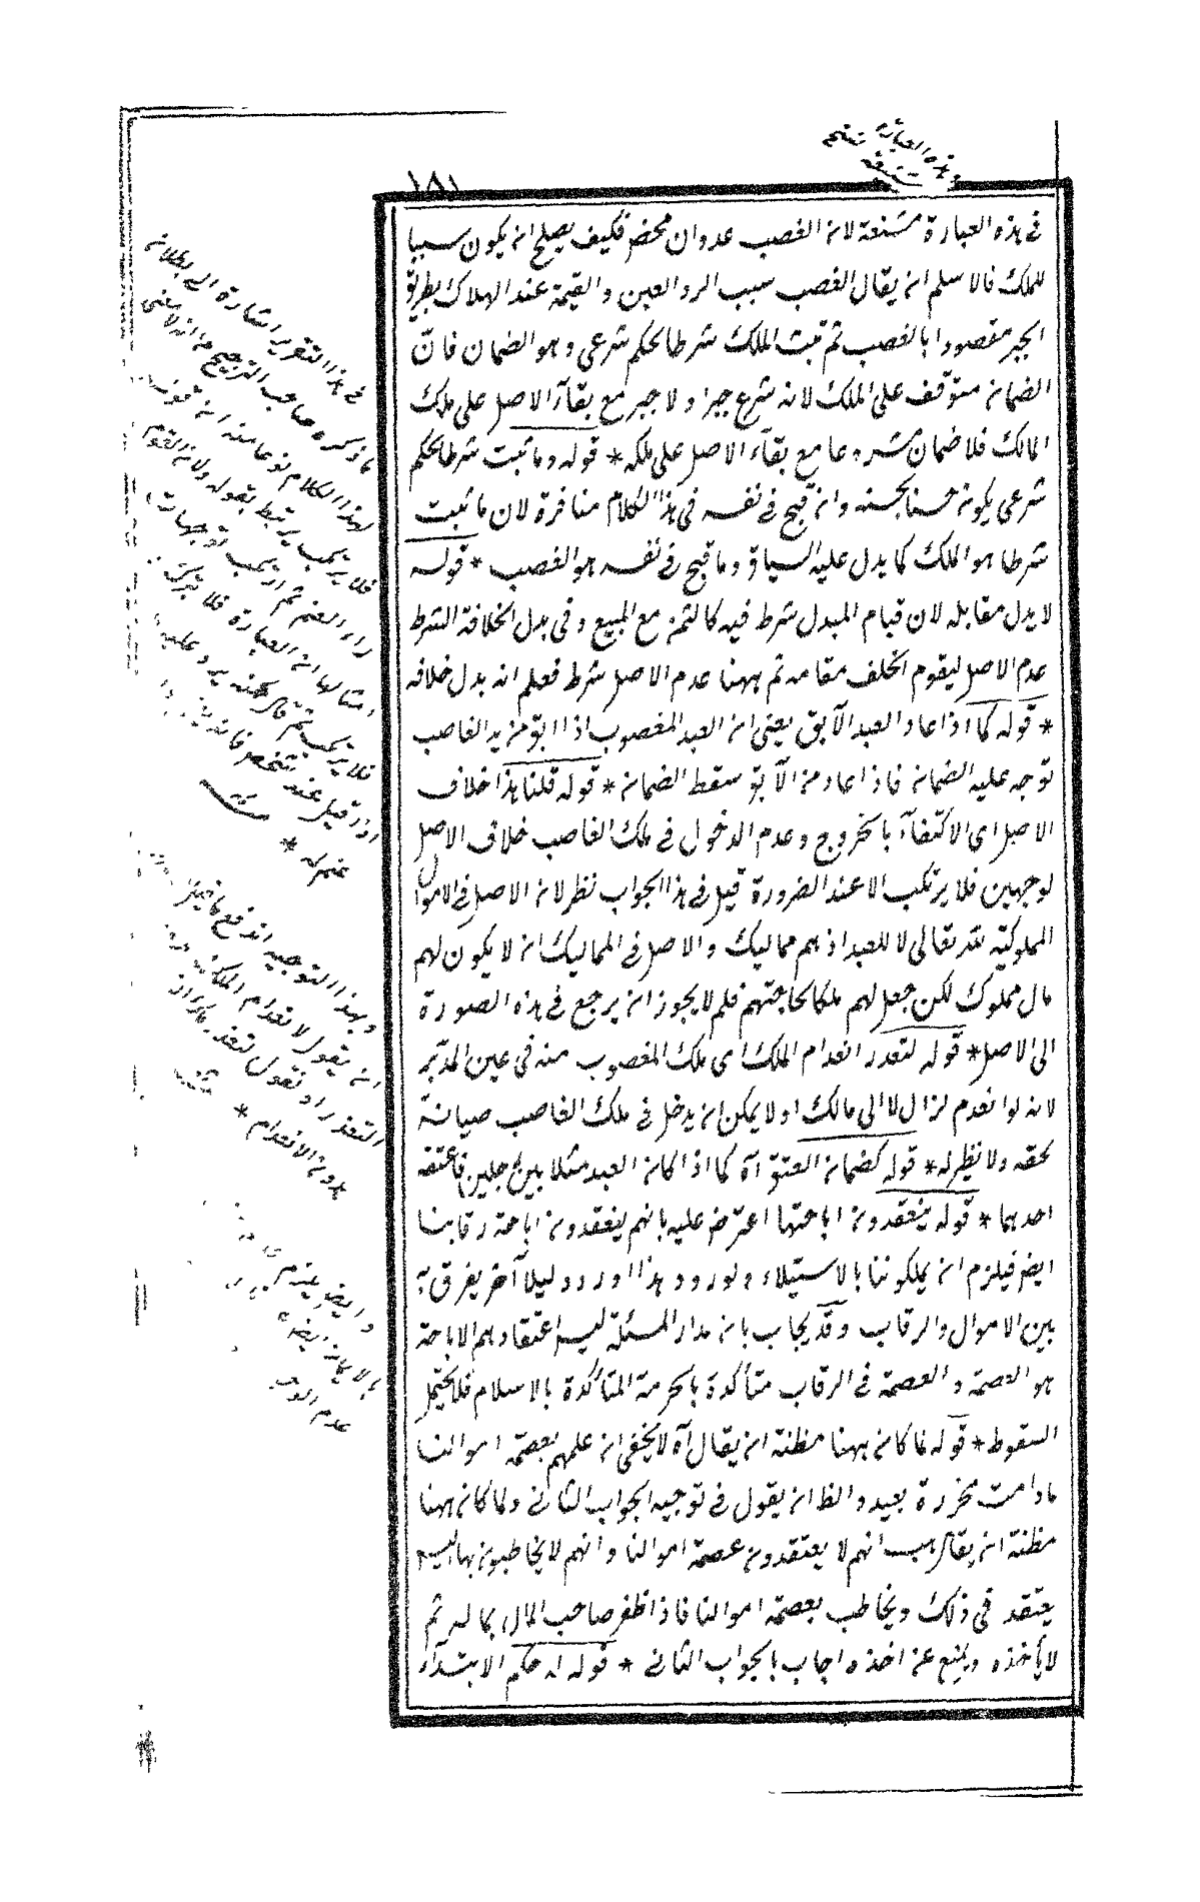 وهذه العبارة
١٨١
في هذه العبارة مشنعة لان الغصب عدوان محض فكيف يصلح ان يكون سببا
للملك فالاسلم ان يقال الغصب سبب الرد العين والقيمة عند الهلاك بطريق
الجبر مقصودا بالغصب ثم تبت الملك شرطا لحكم شرعى وهو الضمان فان
الضمان متوقف على الملك لانه شرع جبرا ولا جبر مع بقآء الاصل على ملك
المالك فلا ضمان مشروعا مع بقآء الاصل على ملكه * قوله وما ثبت شرطا لحكم
شرعى يكون حسنا بحسنه وان قبح في نفسه في هذا الكلام منافرة لان ما ثبت
شرطا هو الملك كما يدل عليه السياق وما قبح في نفسه هو الغصب * قوله
لا بدل مقابله لان قيام المبدل شرط فيه كالثمن مع المبيع وفى بدل الخلافة الشرط
عدم الاصل ليقوم الخلف مقامه ثم ههنا عدم الاصل شرط فعلم انه بدل خلافه
* قوله كما اذا عاد العبد الآبق يعنى ان العبد المغصوب اذا ابق من يد الغاصب
توجه عليه الضمان فاذا عاد من الآبق سقط الضمان * قوله قلنا هذا خلاف
الاصل اى الاكتفآء بالخروج وعدم الدخول في ملك الغاصب خلاف الاصل
لوجهين فلا يرتكب الا عند الضرورة قيل في هذا الجواب نظر لان الاصل في الاموال
المملوكية لله تعالى لا للعبد اذ هم مماليك والاصل في المماليك ان لا يكون لهم
مال مملوك لكن جعل لهم ملكا لحاجتهم فلم لا يجوز ان يرجع في هذه الصورة
الى الاصل * قوله لتعذر انعدام الملك اى ملك المغصوب منه في عين المدبر
لانه لو انعدم لزال لا الى مالك اولا يمكن ان يدخل في ملك الغاصب صيانة
لحقه ولا نظير له * قوله كضمان العتق آه كما اذا كان العبد مثلا بين رجلين فاعتقه
احدهما * قوله ينعقدون اباحتها اعترض عليه بانهم ينعقدون اباحة رقابنا
ايض فيلزم ان يملكوننا بالاستيلاء ولورود هذا اورد دليلا آخر يفرق به
بين الاموال والرقاب وقد يجاب بان مدار المسئلة ليس اعتقادهم الاباحة
هو العصمة والعصمة في الرقاب متأكدة بالحرمة المتأكدة بالاسلام فلا يحتمل
السقوط * قوله لما كان ههنا مظنة ان يقال آه لا يخفى ان علمهم بعصمة اموالنا
مادامت محرزة بعيد والظ ان يقول في توجيه الجواب الثانى ولما كان ههنا
مظنة ان يقال هب انهم لا يعتقدون عصمة اموالنا وانهم لا يخاطبون بها اليس
يعتقد في ذلك ويخاطب بعصمة اموالنا فاذا ظفر صاحب المال بماله ثم
لا يأخذه ويمنع عن اخذه اجاب بالجواب الثانى * قوله له حكم الابتدآء
في هذا التقرير اشارة الى بطلان
ما ذكره صاحب الترجيح
لهذا الكلام نوعا منه
فلا يرتكب يرتبط بقوله
العبارة فلا
وبهذا التوجيه اندفع ما قيل
ان يقول لانعدام الملك
التعذر او نقول لتعذر
دون الانعدام *
وايض
بالايمان ايض
عدم